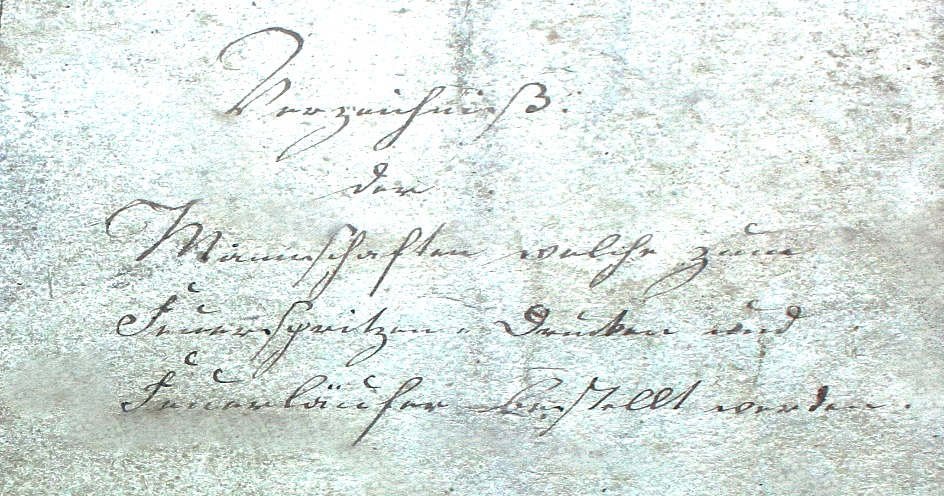 Verzeichniß
der
Mannschaften welche zum
Feuerspritzen-Drucken und
Feuerläufer bestellt werden.